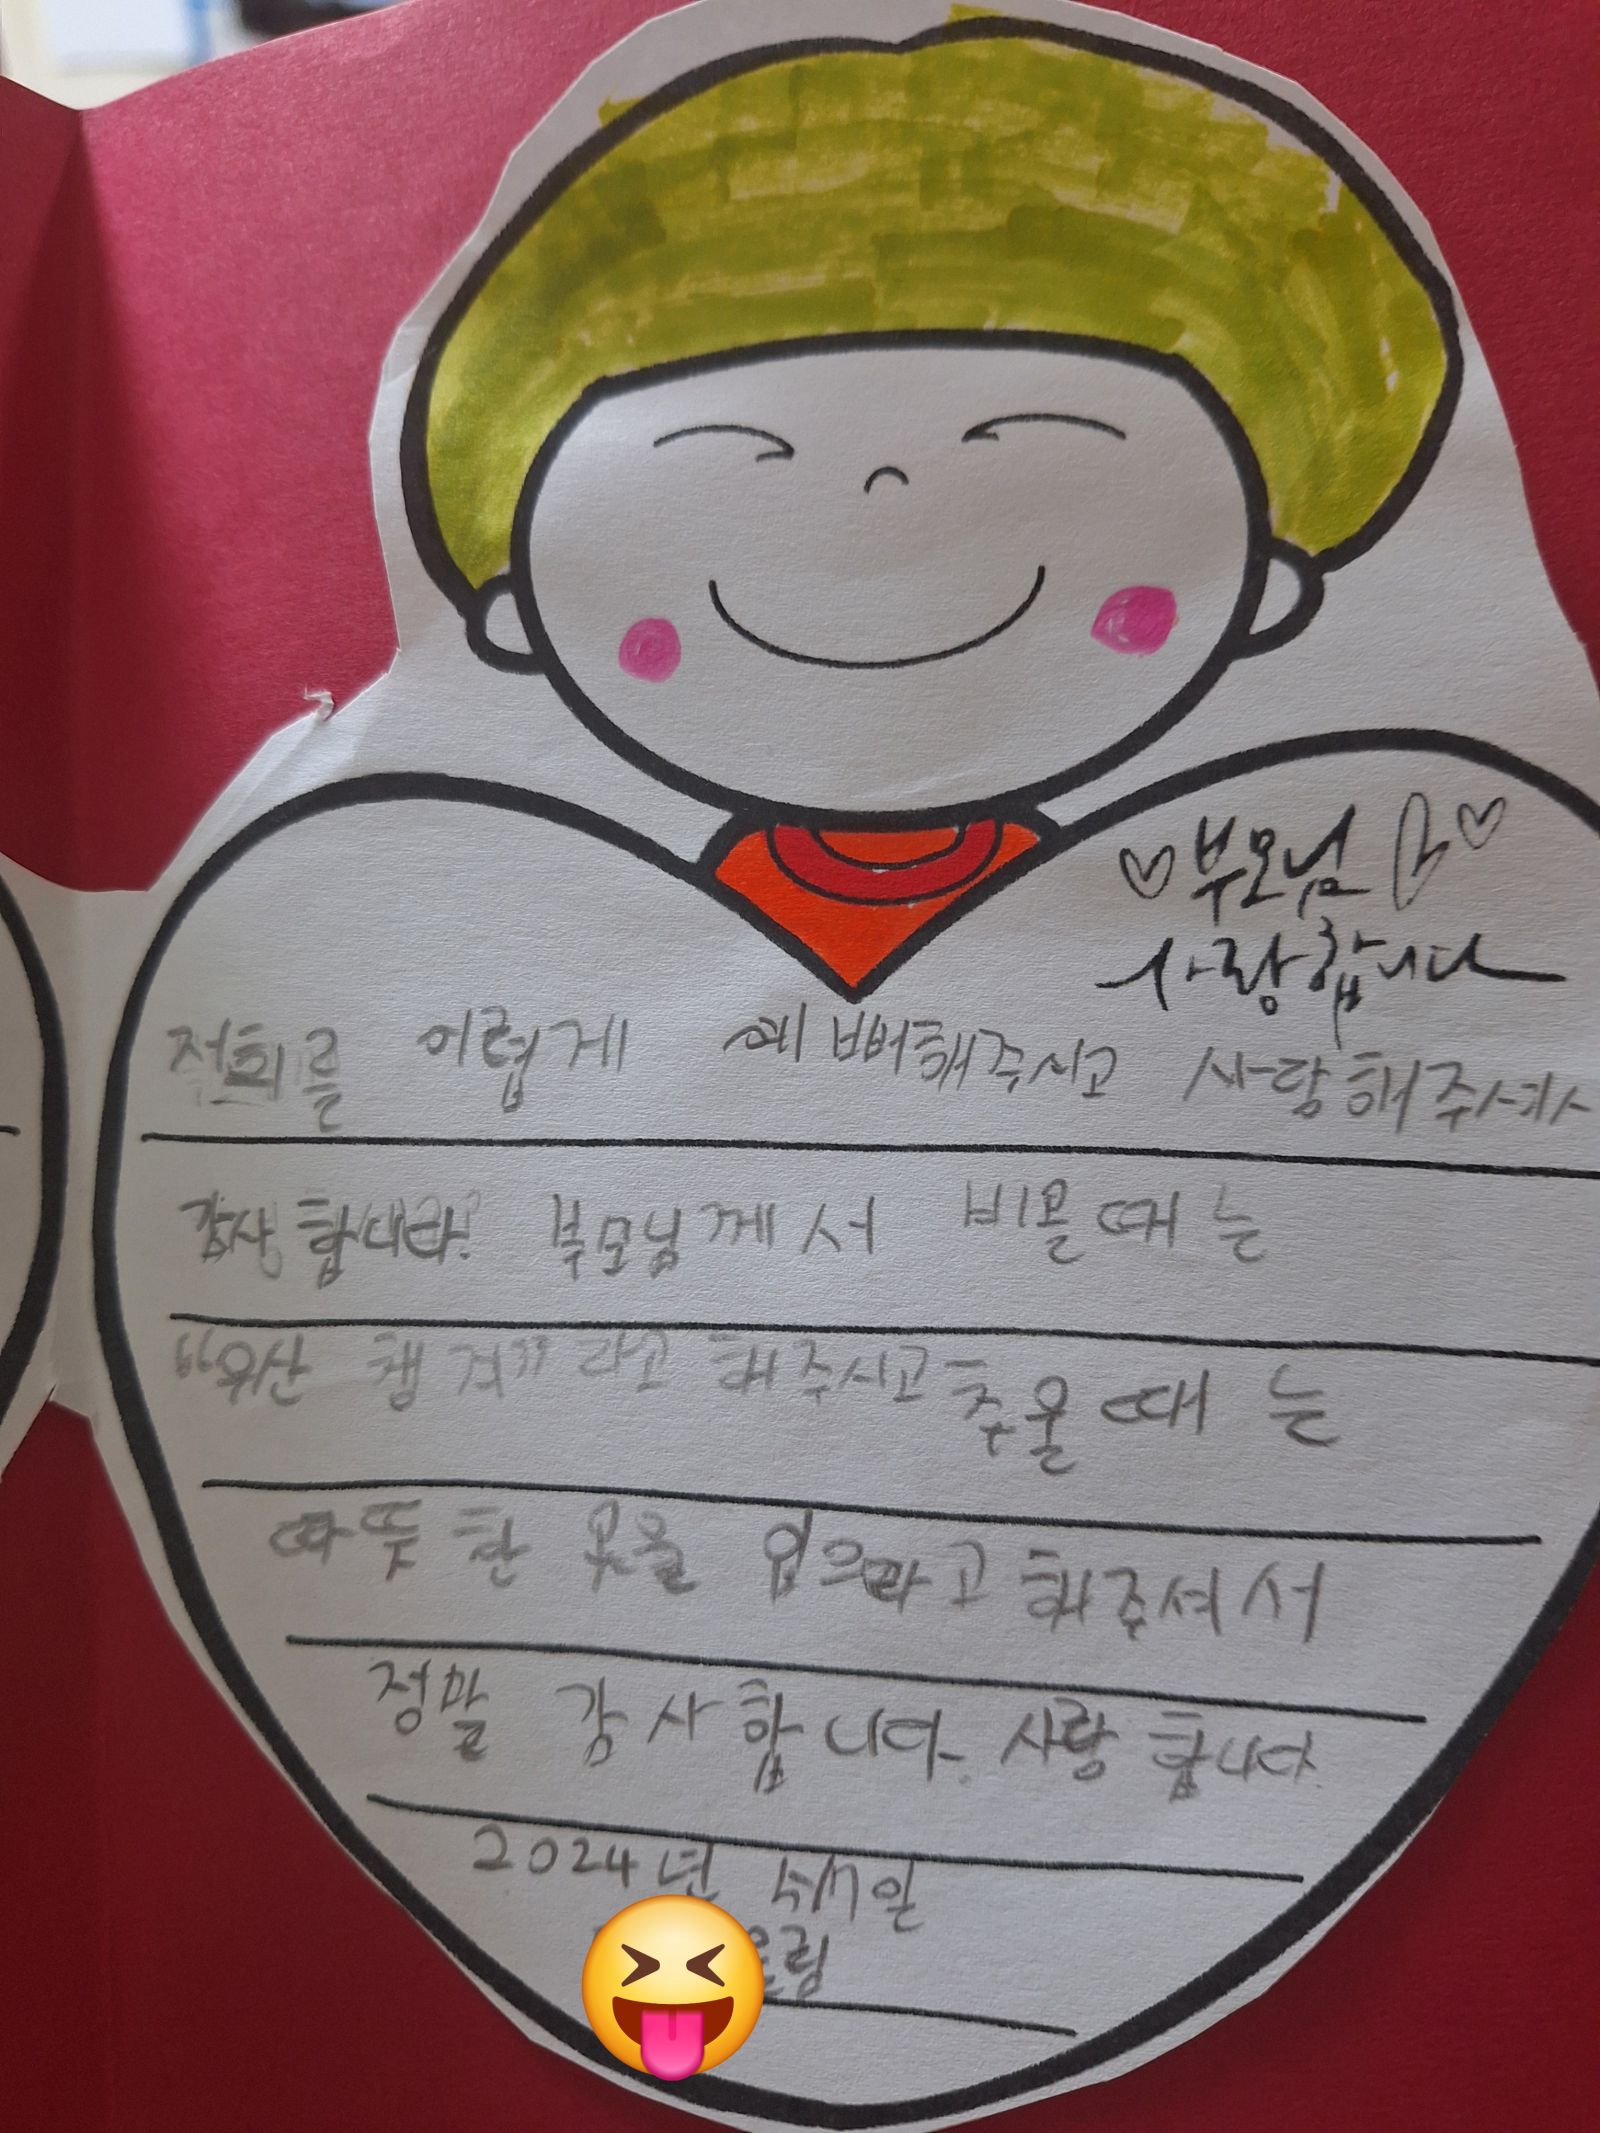 부모님
사랑합니다
저희를 이렇게 예뻐해주시고 사랑해주셔서
감사합니다. 부모님께서 비올때는
"우산 챙겨"라고 해주시고 추울때는
따뜻한 옷을 입으라고 해주셔서
정말 감사합니다. 사랑합니다.
2024년
올림